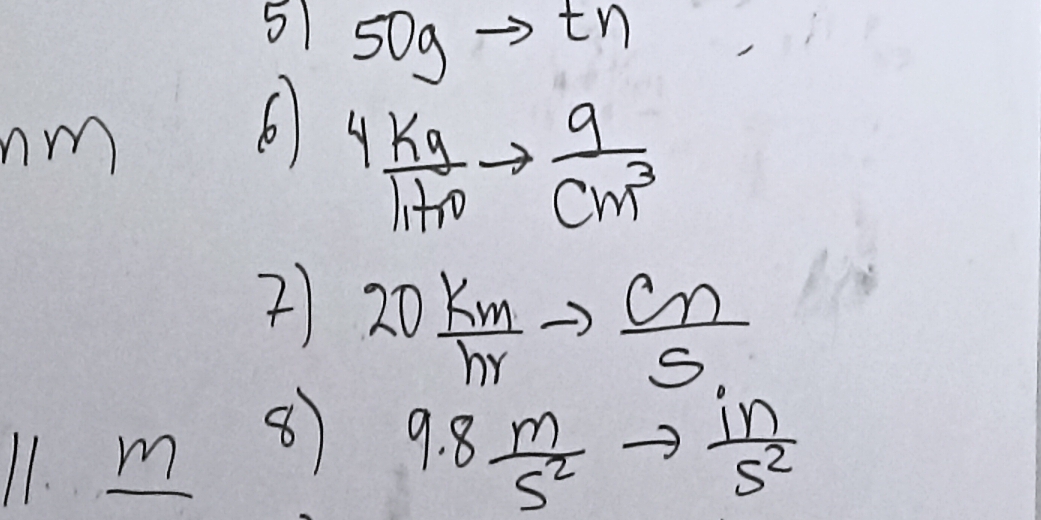 5) 50g → tn
nm
6) 4 Kg/litro → g/cm³
7) 20 Km/hr → cn/s
8) 9.8 m/s² → in/s²
11. m